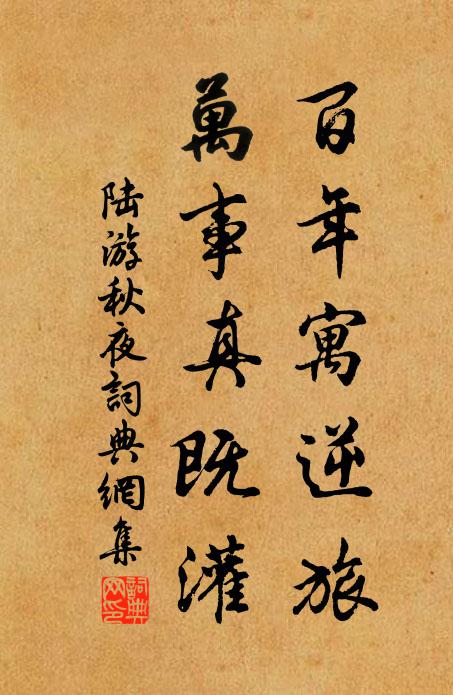 百年寓逆旅
萬事真既灌
陸游秋夜詞典網集
詞典網印